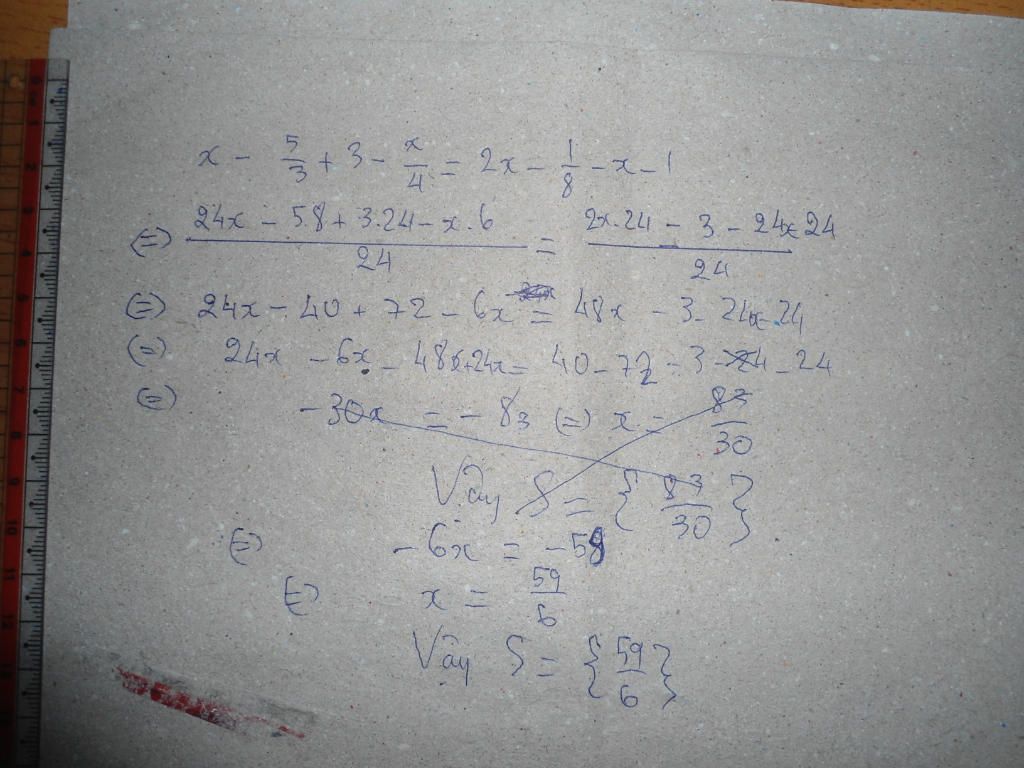 x - 5/3 + 3 - x/4 = 2x - 1/8 - x - 1
(=) (24x - 5.8 + 3.24 - x.6)/24 = (2x.24 - 3 - 24x 24)/24
(=) 24x - 40 + 72 - 6x = 48x - 3 - 24x - 24
(=) 24x - 6x - 48x + 24x = 40 - 72 - 3 - 24
(=) -30x = -83 (=) x = 83/30
Vậy S = {83/30}
(=) -6x = -59
(=) x = 59/6
Vậy S = {59/6}